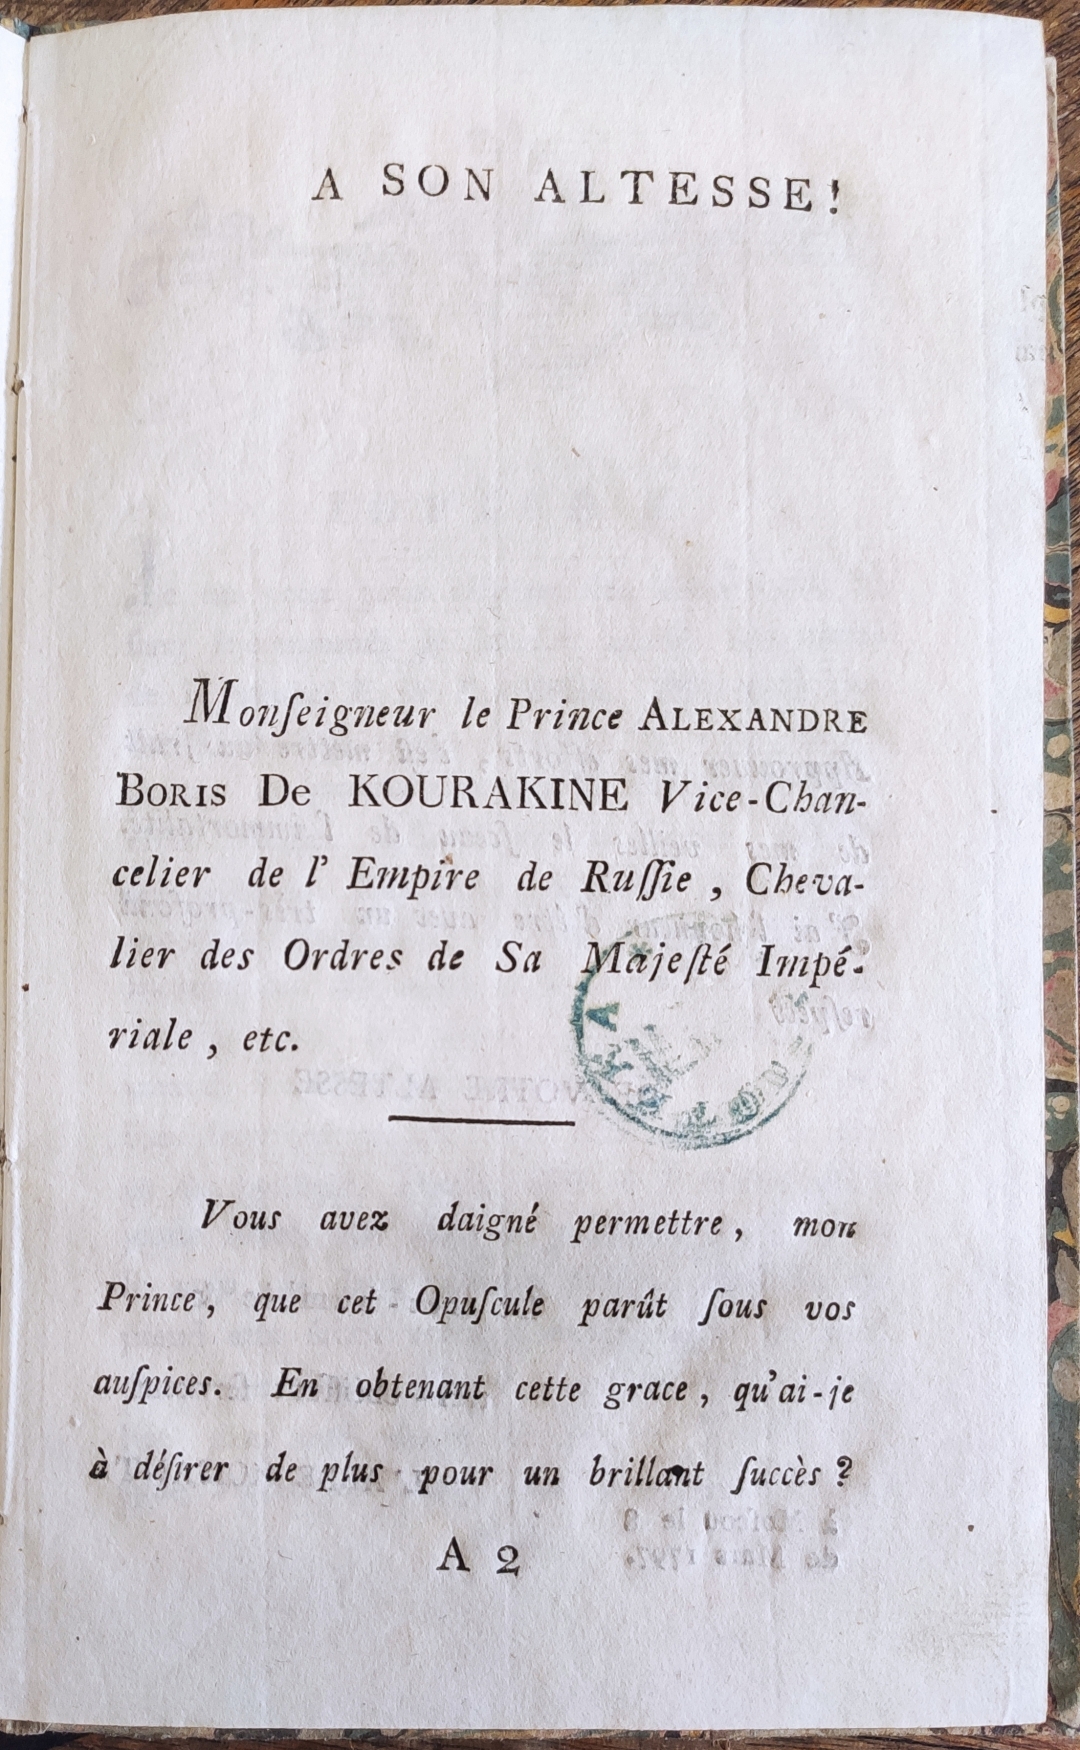 A SON ALTESSE!
Monſeigneur le Prince ALEXANDRE
BORIS De KOURAKINE Vice-Chan-
celier de l' Empire de Ruſſie, Cheva-
lier des Ordres de Sa Majeſté Impé-
riale, etc.
Vous avez daigné permettre, mon
Prince, que cet Opuſcule parût ſous vos
auſpices. En obtenant cette grace, qu'ai-je
à déſirer de plus pour un brillant ſuccès?
A 2